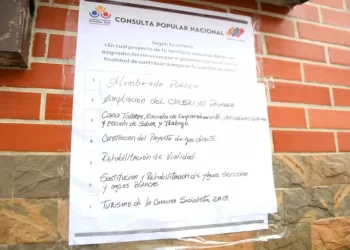 CONSULTA POPULAR NACIONAL
Según tu criterio
¿En cuál proyecto de tu territorio comunal deben ser
asignados los recursos por el gobierno nacional con la
finalidad de contribuir a mejorar la calidad de vida?
1 Alumbrado Público
2 Ampliación del C.P.
3 Casa Taller, Escuela de Emprendimiento,
y escuela de Saber y Trabajo
4 Construcción del Proyecto de gas directo.
5 Rehabilitación de Vialidad
6 Sustitución y Rehabilitación de aguas servidas
y aguas Blancas
7 Turismo de la Comuna Socialista 2015